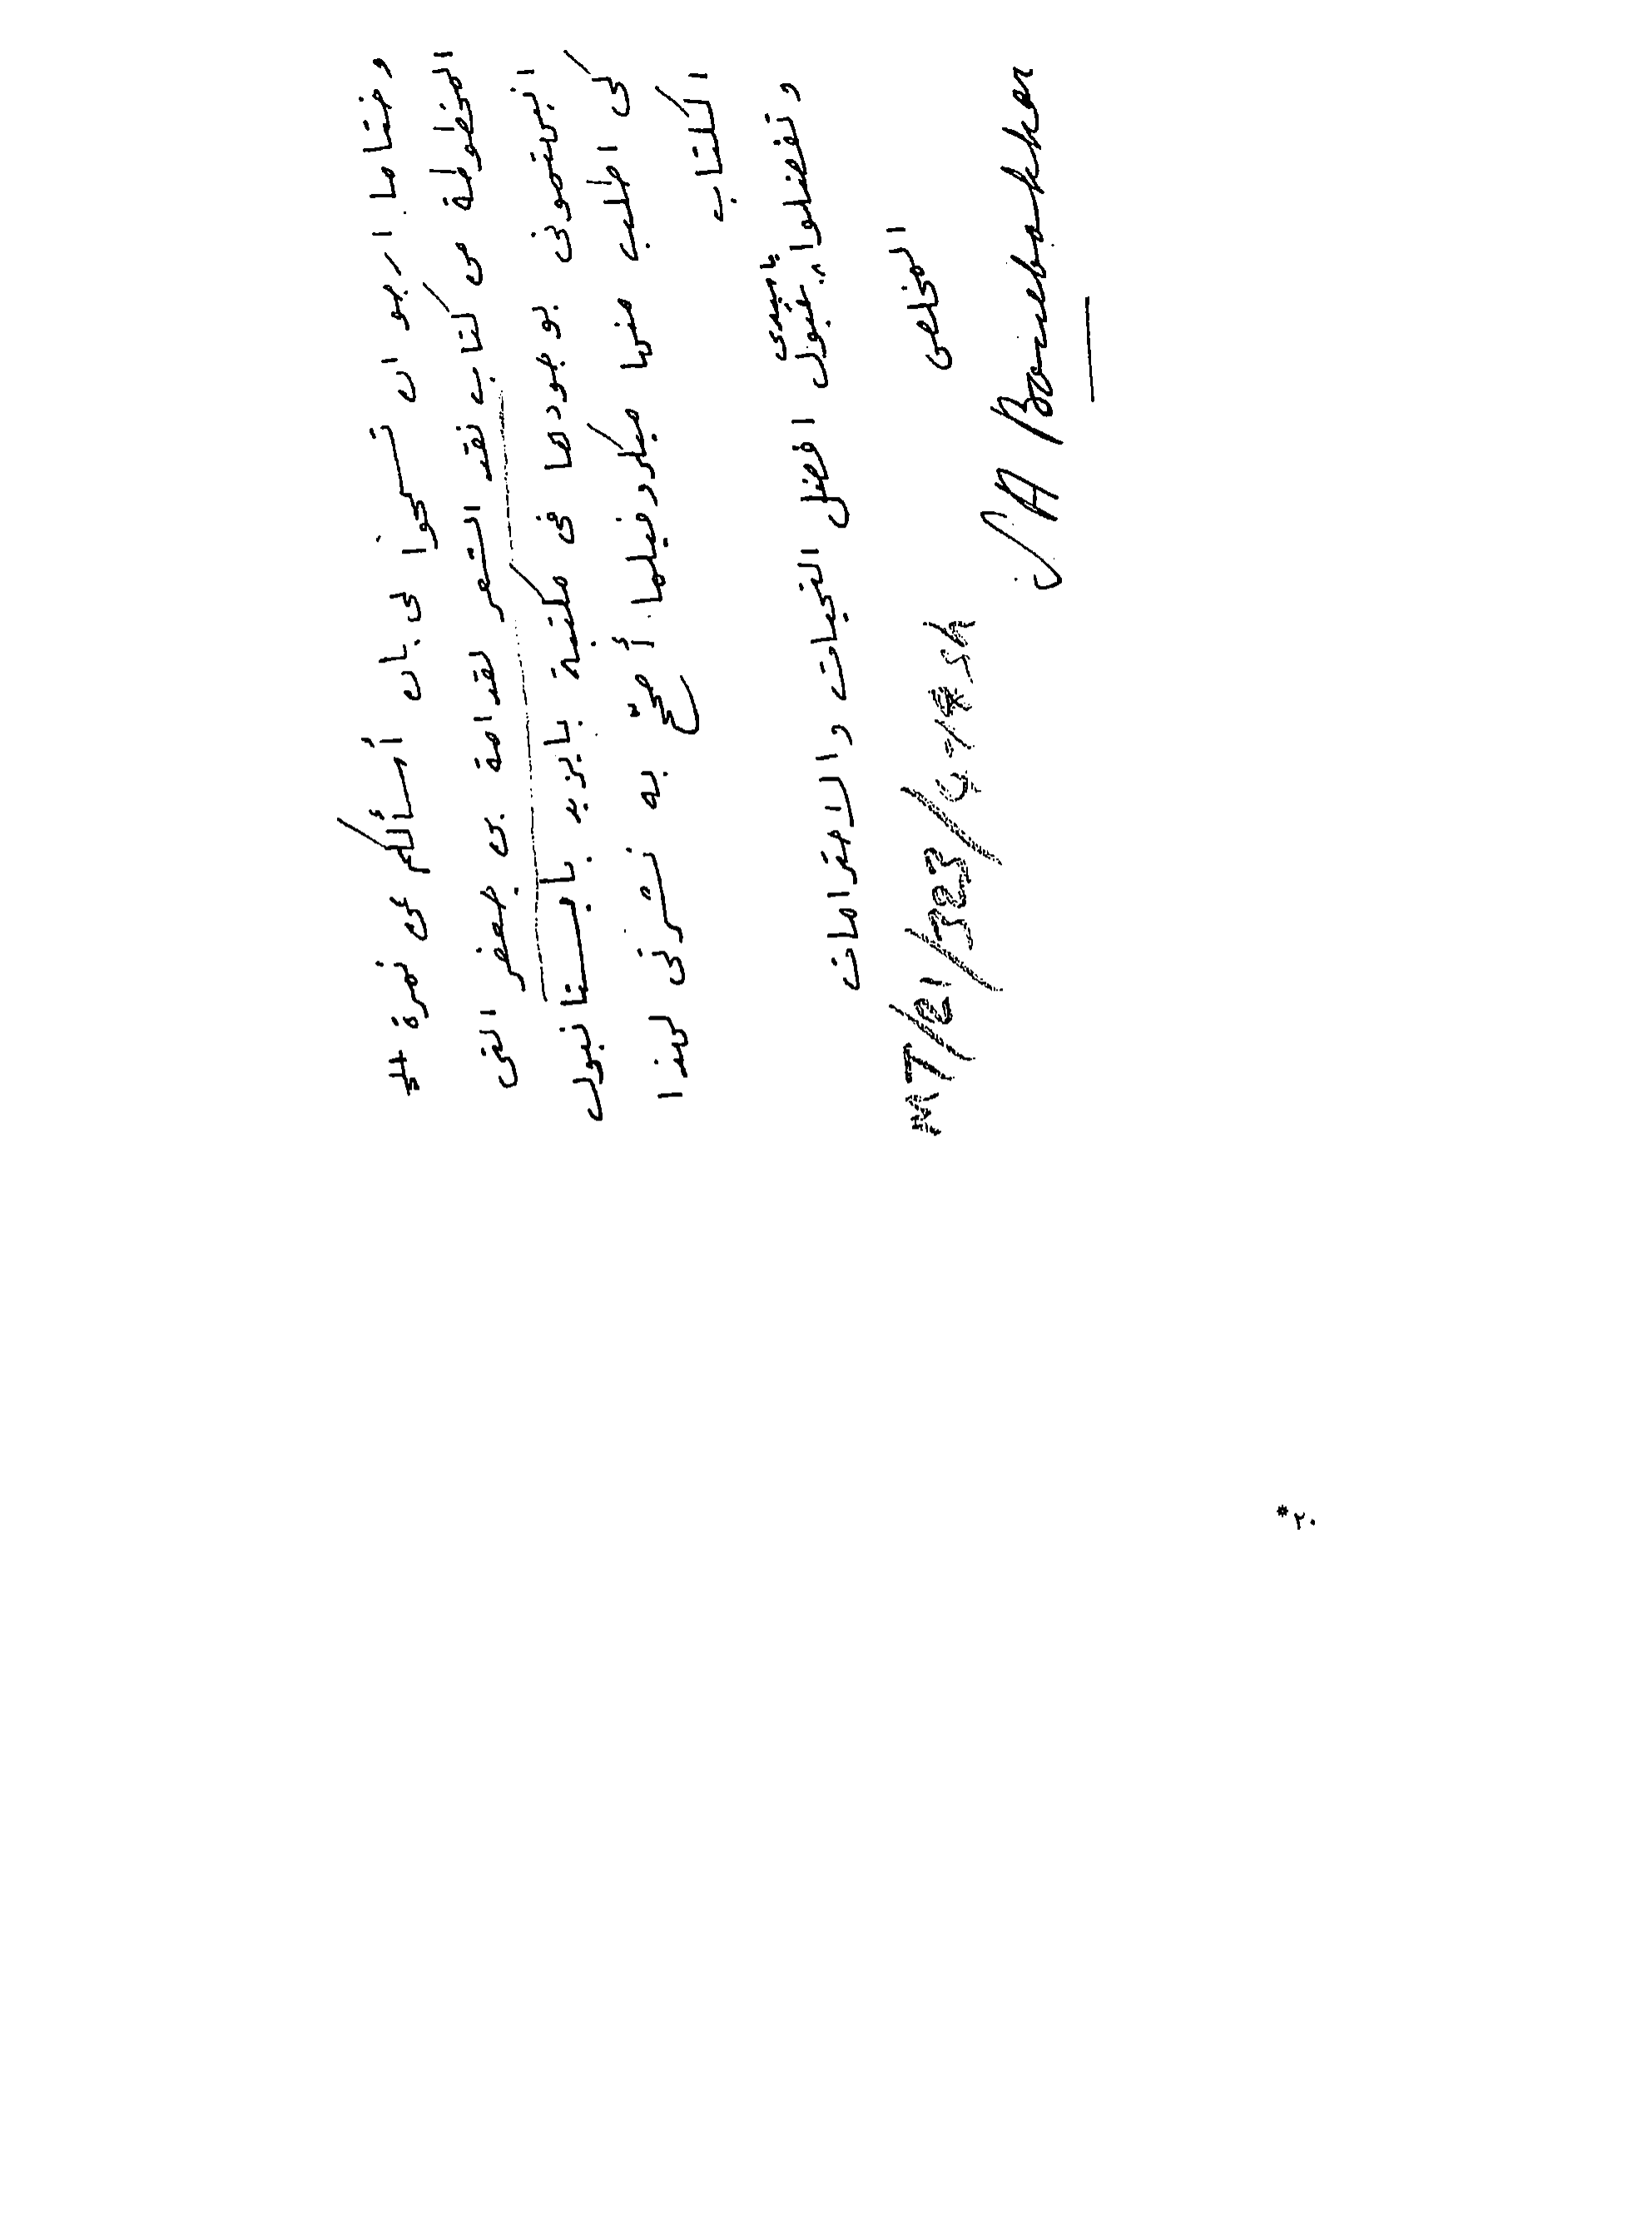 وختاما ارجو ان تسمحوا لى بان أسألكم عن نمرة
المخطوطة من كتاب نقد الشعر لقدامة بن جعفر التى
انبئتمونى بوجودها فى مكتبة بايزيد باستانبول
كى اطلب منها ميكروفيلما أصحّح به نشرتى لهذا
الكتاب
وتفضلوا يا سيدى بقبول افضل التحيات والاحترامات
المخلص
S A Bonebakker
MT/21/323/